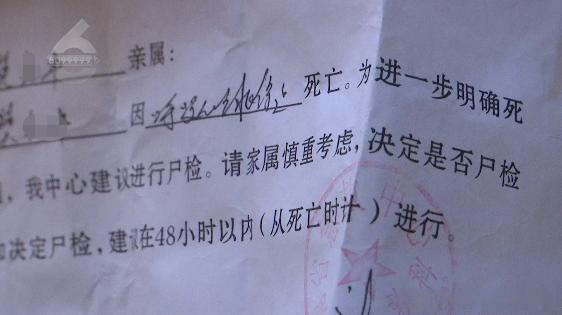 6
8099999
亲属:
因呼吸心跳停止死亡。为进一步明确死
,我中心建议进行尸检。请家属慎重考虑,决定是否尸检
决定尸检,建议在48小时以内(从死亡时计)进行。